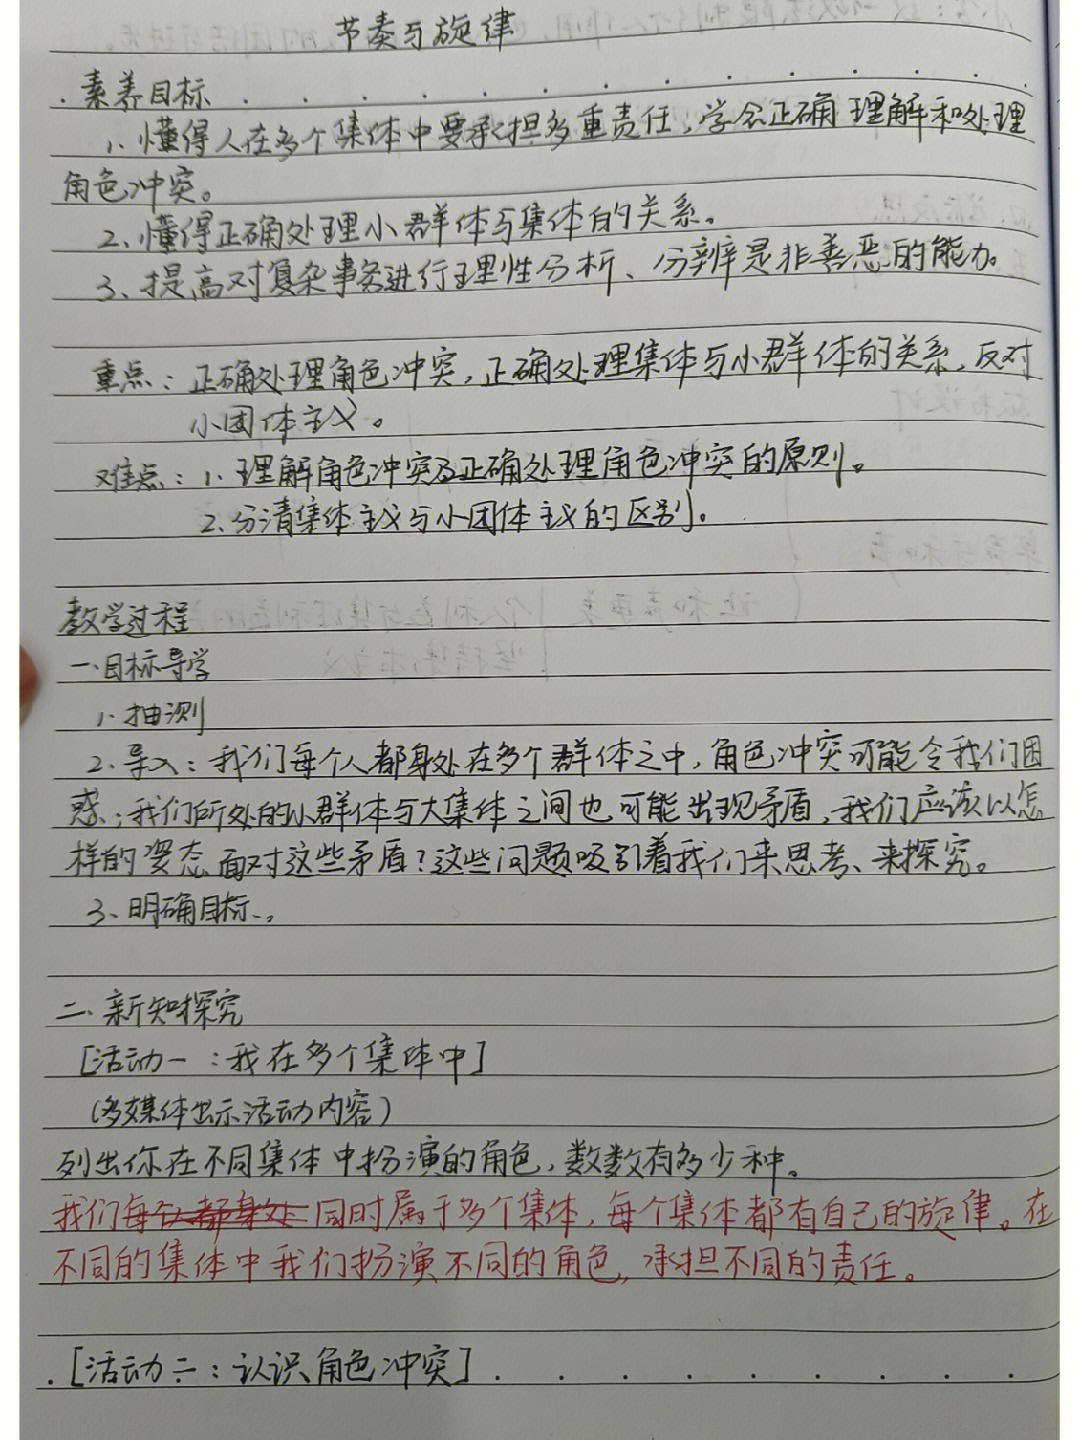 节奏与旋律
素养目标
1、懂得人在多个集体中要承担多重责任,学会正确理解和处理
角色冲突。
2、懂得正确处理小群体与集体的关系。
3、提高对复杂事务进行理性分析、分辨是非善恶的能力。
重点:正确处理角色冲突,正确处理集体与小群体的关系,反对
小团体主义。
难点:1、理解角色冲突及正确处理角色冲突的原则。
2、分清集体主义与小团体主义的区别。
教学过程
一、目标导学
1、抽测
2、导入:我们每个人都身处在多个群体之中,角色冲突可能令我们困
惑;我们所处的小群体与大集体之间也可能出现矛盾,我们应该以怎
样的姿态面对这些矛盾?这些问题吸引着我们来思考、来探究。
3、明确目标.。
二、新知探究
[活动一:我在多个集体中]
(多媒体出示活动内容)
列出你在不同集体中扮演的角色,数数有多少种。
我们每个人都身处同时属于多个集体,每个集体都有自己的旋律。在
不同的集体中我们扮演不同的角色,承担不同的责任。
[活动二:认识角色冲突]